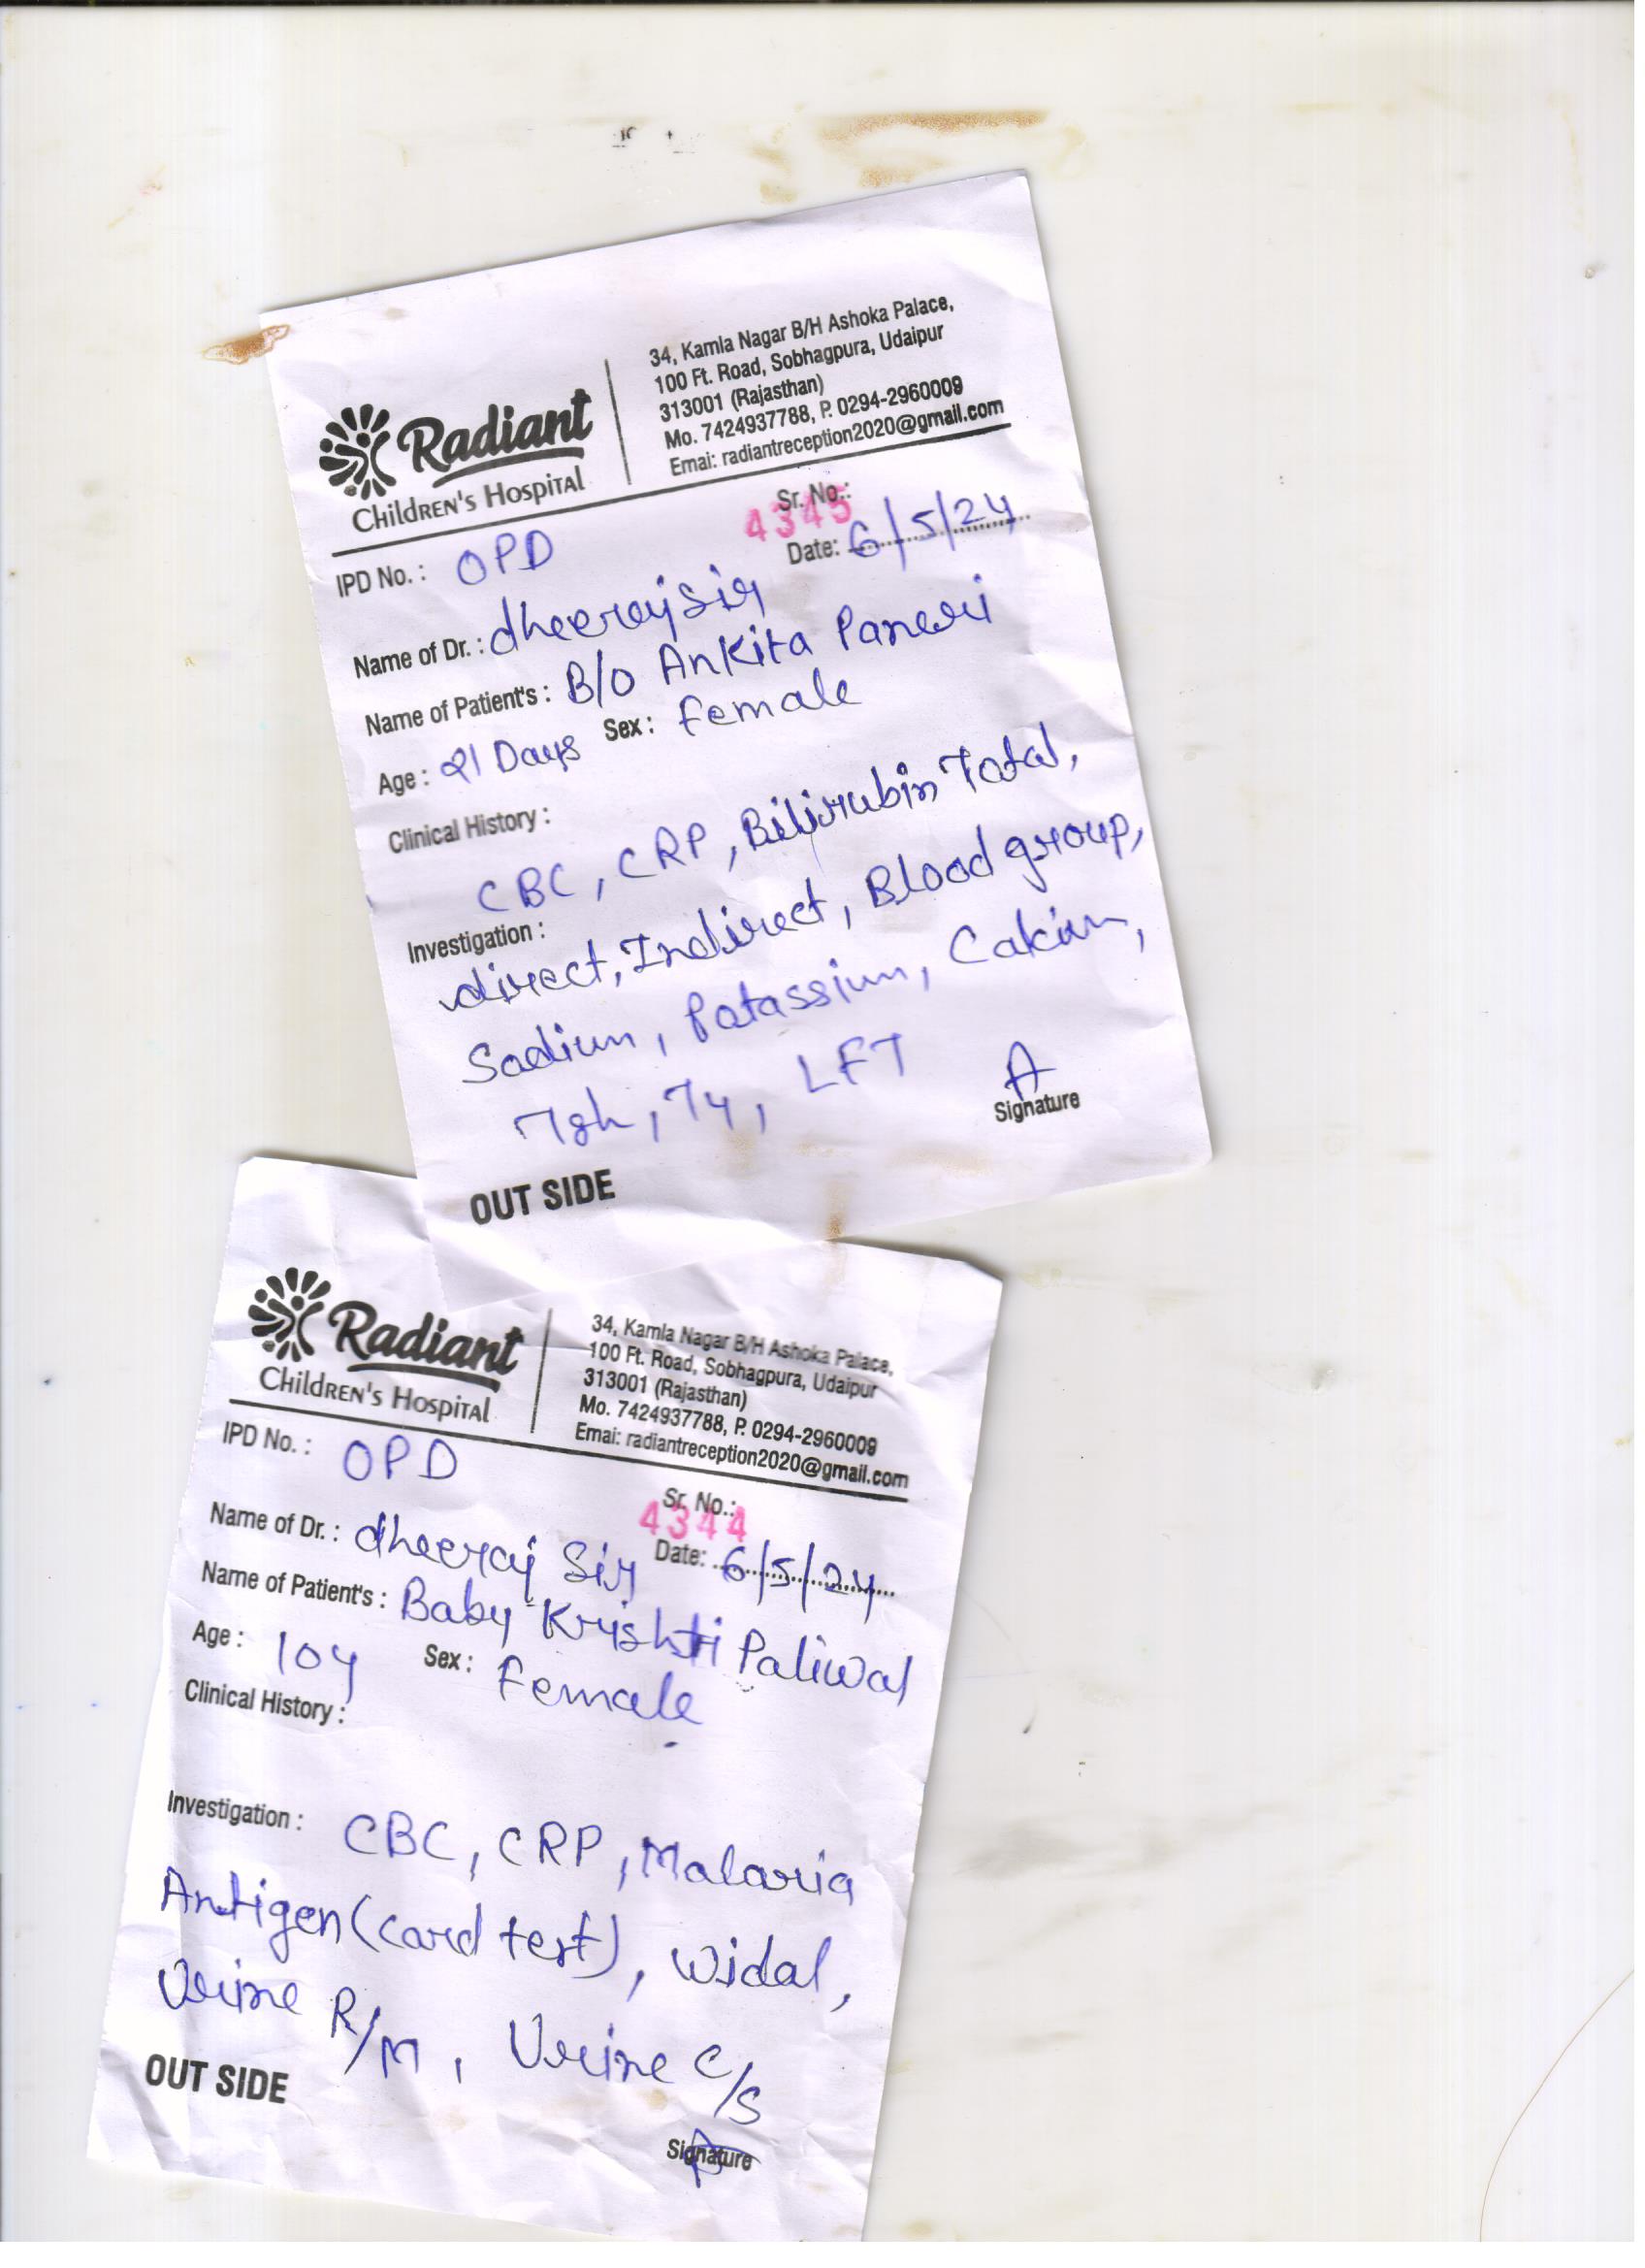 Radiant
Children's Hospital
34, Kamla Nagar B/H Ashoka Palace,
100 Ft. Road, Sobhagpura, Udaipur
313001 (Rajasthan)
Mo. 7424937788, P. 0294-2960009
Emai: radiantreception2020@gmail.com
Sr. No.: 4345
IPD No. : OPD
Date: 6/5/24
Name of Dr. : dheeraj sir
Name of Patient's : B/O Ankita Paneri
Age : 21 Days Sex : female
Clinical History :
CBC, CRP, Bilirubin Total,
Investigation :
direct, Indirect, Blood group,
Sodium, Potassium, Calcium,
Tsh, T4, LFT
Signature
OUT SIDE
Radiant
Children's Hospital
34, Kamla Nagar B/H Ashoka Palace,
100 Ft. Road, Sobhagpura, Udaipur
313001 (Rajasthan)
Mo. 7424937788, P. 0294-2960009
Emai: radiantreception2020@gmail.com
IPD No. : OPD
Sr. No.: 4344
Name of Dr. : dheeraj Sir Date: 6/5/24
Name of Patient's : Baby Krishti Paliwal
Age : 10y Sex : female
Clinical History :
Investigation : CBC, CRP, Malaria
Antigen (card test), widal,
Urine R/M, Urine C/S
OUT SIDE
Signature